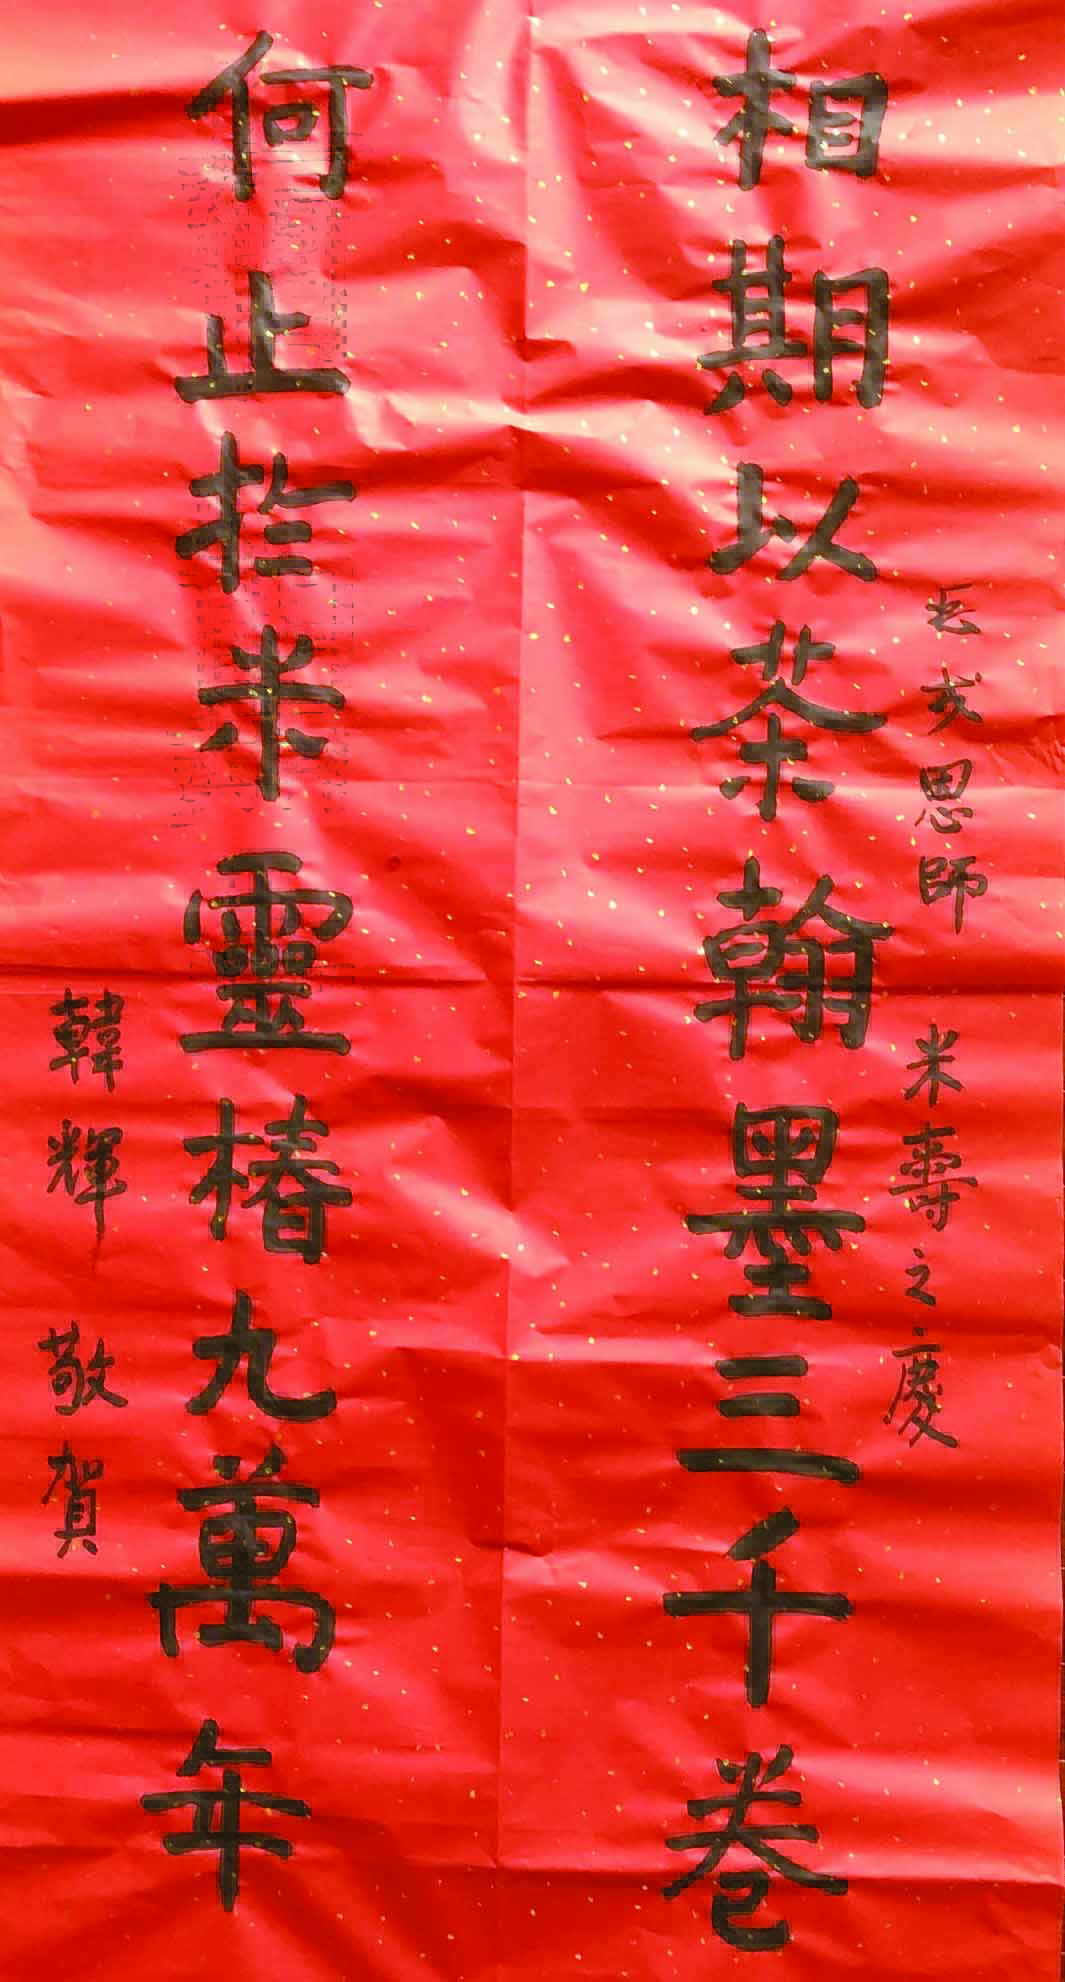 恩師 米壽之慶
相期以茶翰墨三千卷
何止扵米靈椿九萬年
韓輝 敬賀